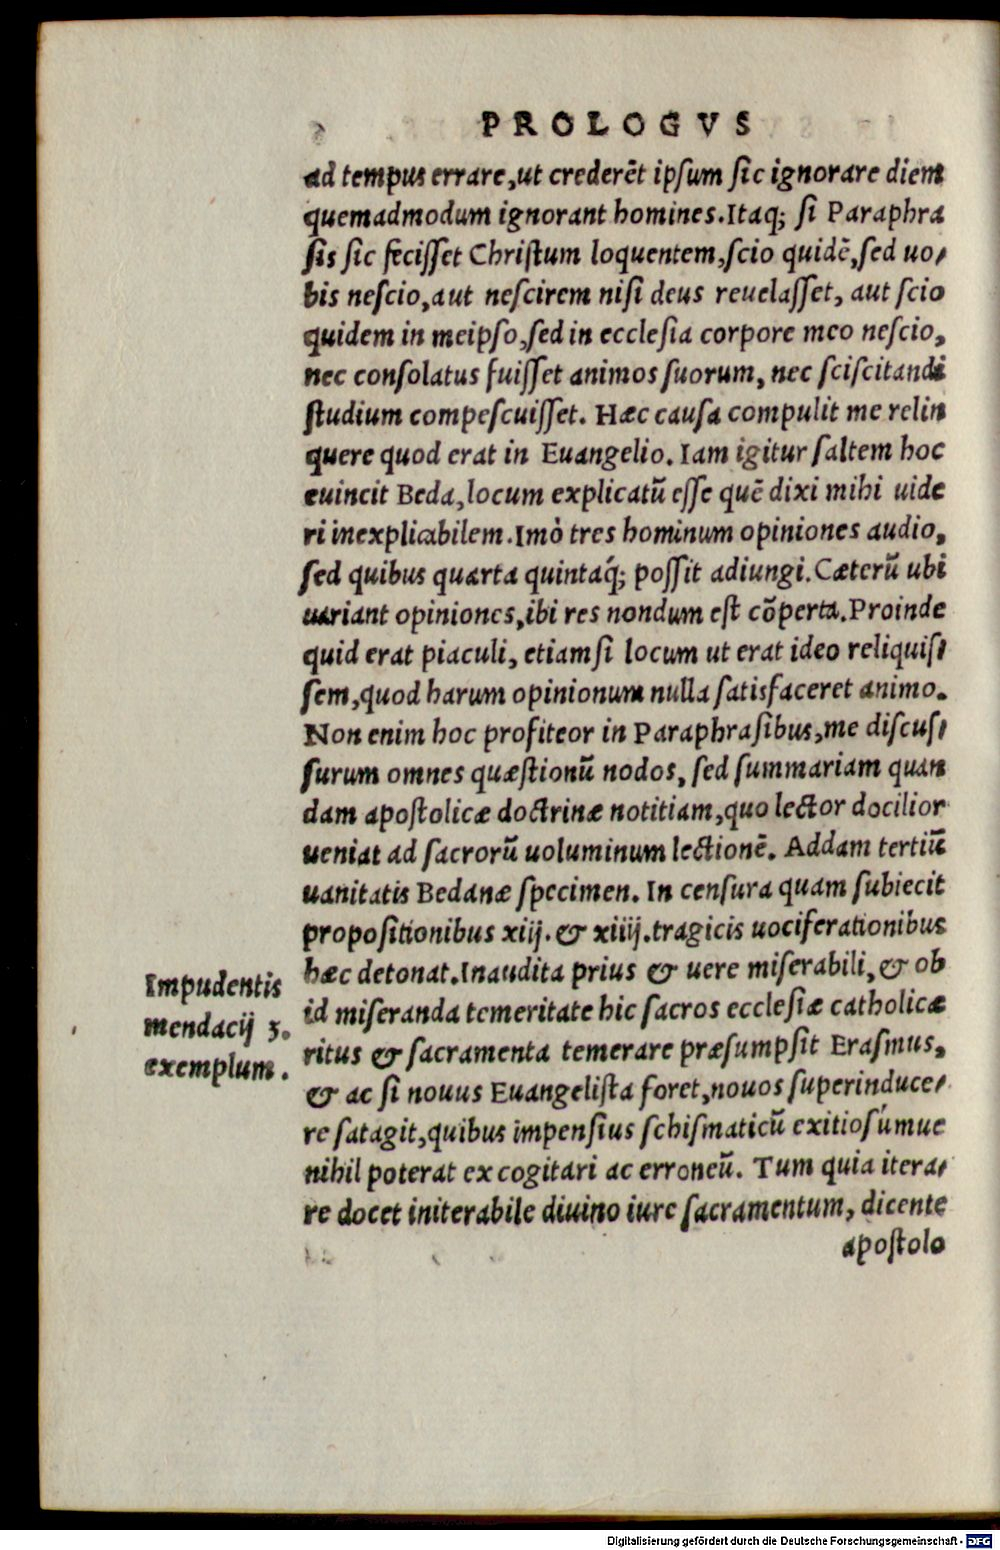 PROLOGVS
ad tempus errare, ut crederẽt ipsum sic ignorare diem
quemadmodum ignorant homines. Itaq; si Paraphra
sis sic fecisset Christum loquentem, scio quidẽ, sed uo⸗
bis nescio, aut nescirem nisi deus reuelasset, aut scio
quidem in meipso, sed in ecclesia corpore meo nescio,
nec consolatus fuisset animos suorum, nec sciscitandi
studium compescuisset. Hæc causa compulit me relin
quere quod erat in Euangelio. Iam igitur saltem hoc
euincit Beda, locum explicatũ esse quẽ dixi mihi uide
ri inexplicabilem. Imò tres hominum opiniones audio,
sed quibus quarta quintaq́; possit adiungi. Cæterũ ubi
uariant opiniones, ibi res nondum est cõperta. Proinde
quid erat piaculi, etiam si locum ut erat ideo reliquis⸗
sem, quod harum opinionum nulla satisfaceret animo.
Non enim hoc profiteor in Paraphrasibus, me discus⸗
surum omnes quæstionũ nodos, sed summariam quan
dam apostolicæ doctrinæ notitiam, quo lector docilior
ueniat ad sacrorũ uoluminum lectionẽ. Addam tertiũ
uanitatis Bedanæ specimen. In censura quam subiecit
propositionibus xiij. & xiiij. tragicis uociferationibus
hæc detonat. Inaudita prius & uere miserabili, & ob
id miseranda temeritate hic sacros ecclesiæ catholicæ
ritus & sacramenta temerare præsumpsit Erasmus,
& ac si nouus Euangelista foret, nouos superinduce⸗
re satagit, quibus impensius schismaticũ exitiosúmue
nihil poterat excogitari ac erroneũ. Tum quia itera⸗
re docet initerabile diuino iure sacramentum, dicente
apostolo
Impudentis
mendacij 3.
exemplum.
Digitalisierung gefördert durch die Deutsche Forschungsgemeinschaft - DFG